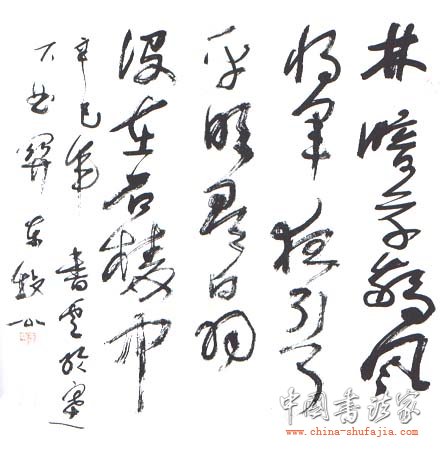 林暗草驚風
将军夜引弓
平明尋白羽
没在石棱中
辛巳年 書
中國书法家
www.china-shufajia.com